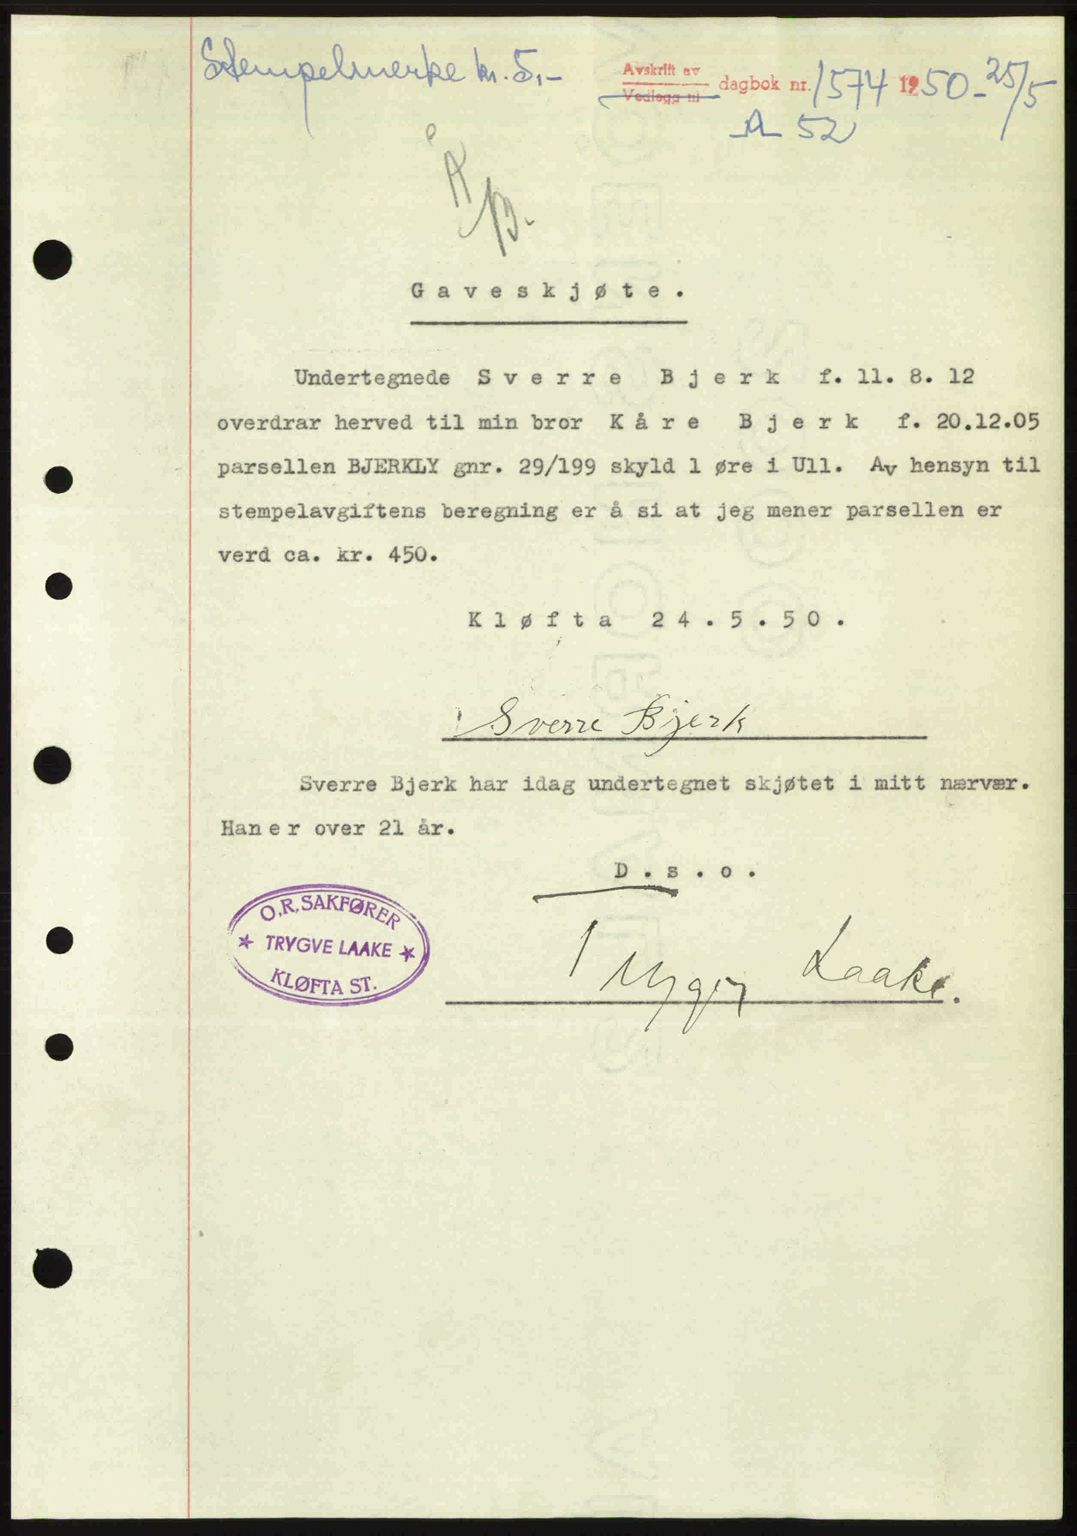 Stempelmerke kr. 5,-
Avskrift av
Vedlegg til
dagbok nr. 1574 1950 - 25/5
A 52
G a v e s k j ø t e .
Undertegnede S v e r r e B j e r k f. 11. 8. 12
overdrar herved til min bror K å r e B j e r k f. 20.12.05
parsellen BJERKLY gnr. 29/199 skyld 1 øre i Ull. Av hensyn til
stempelavgiftens beregning er å si at jeg mener parsellen er
verd ca. kr. 450.
K l ø f t a 2 4 . 5 . 5 0 .
Sverre Bjerk
Sverre Bjerk har idag undertegnet skjøtet i mitt nærvær.
Han e r over 21 år.
D . s . o .
O.R.SAKFØRER
* TRYGVE LAAKE *
KLØFTA ST.
Trygve Laake.